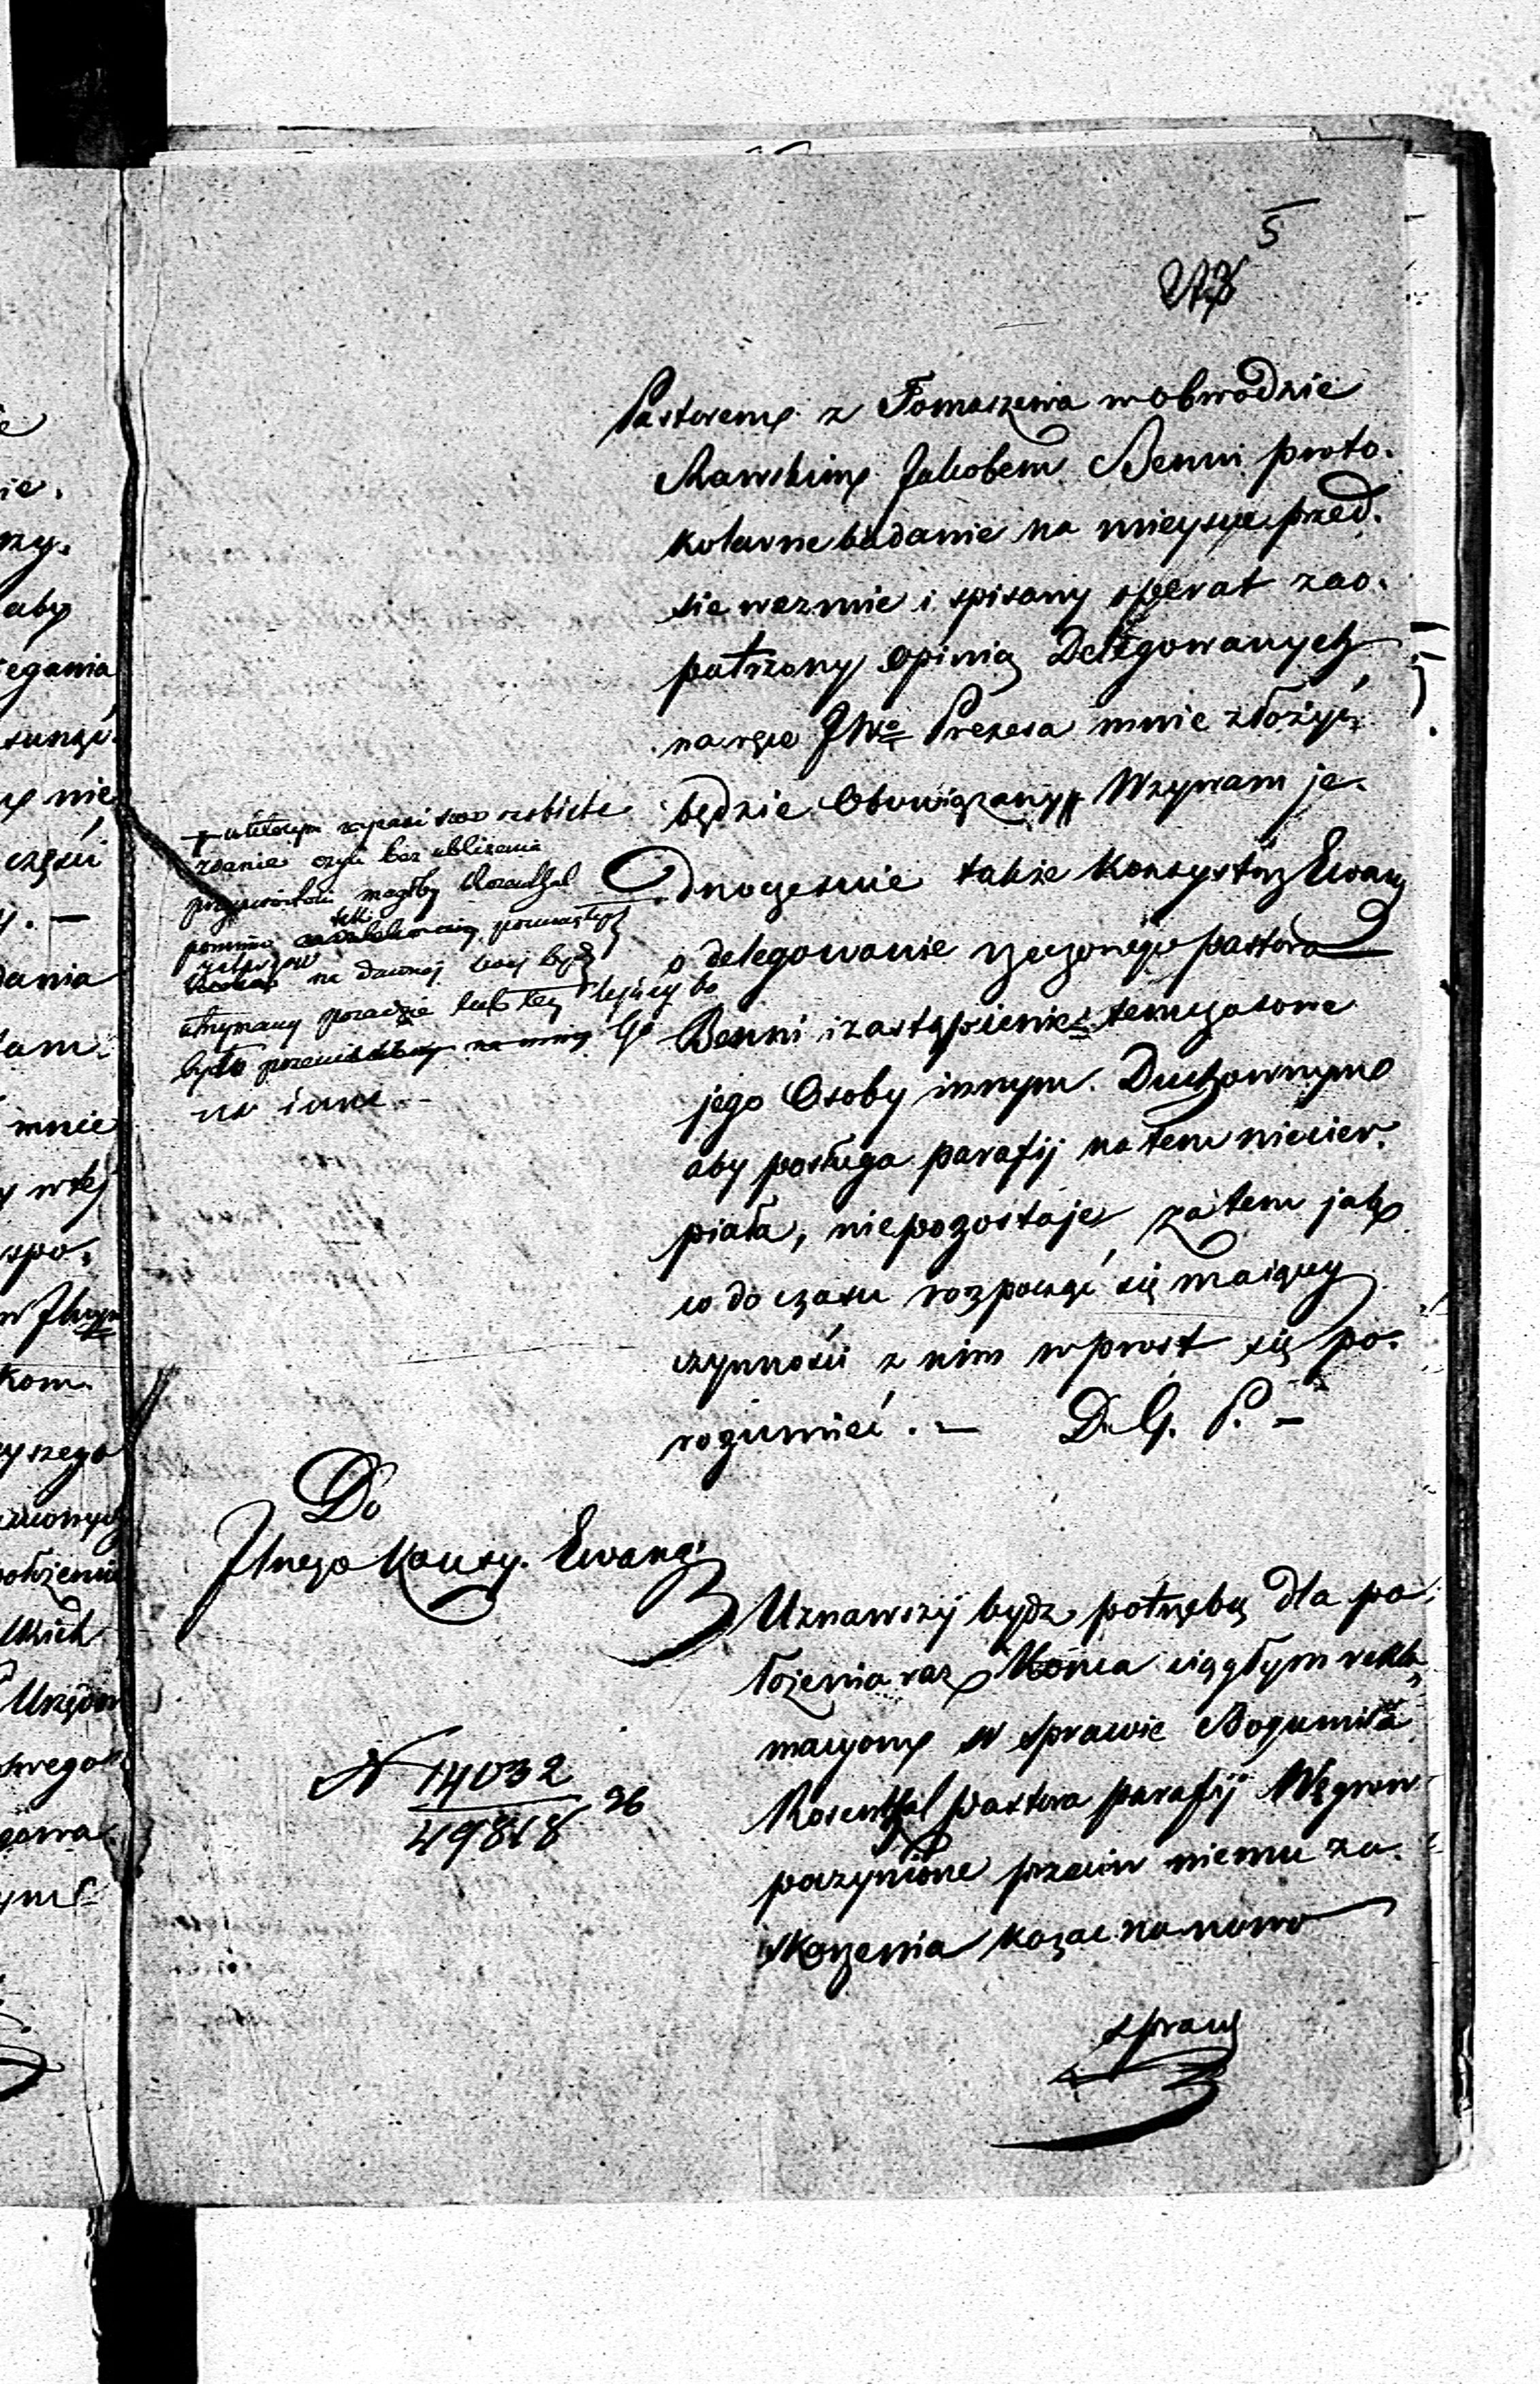 5
Pastorem z Tomaszewa w obwodzie
Rawskim Jakobem Benni proto-
kolarne badanie na mieysce przed-
sie wezmie i spisany operat zao-
patrzony opinią Delegowanych
na ręce JWo Prezesa mnie złożyć
będzie Obowiązany Wzywam je-
dnocześnie także Konsystorz Ewang
o delegowanie rzeczonego pastora
Benni i zastąpienie temczasowe
jego Osoby innym Duchownym
aby posługa parafij na tem niecier-
piała, niepozostaje zatem jak
co do czasu rozpocząć się maiącey
czynności z nim wprost się po-
rozumieć. — D. G. P. —
+ w którym wyrazi swe osobiste
zdanie czyli bez ubliżenia
przyzwoitości mogłby Rosenthal
pomimo tych
zatargow na dawnej być
utrzymany posadzie lub też
było go
na inne
Do
Jlnego Konsy. Ewang.
N 14032
49818 26
Uznawszy bydz potrzebą dla po-
łożenia raz Końca ciągłym rekla-
macyom w sprawie Bogumiła
Rosenthal pastora parafij Węgrow
poczynione przeciw niemu za-
skarzenia kazac na nowo
spraw